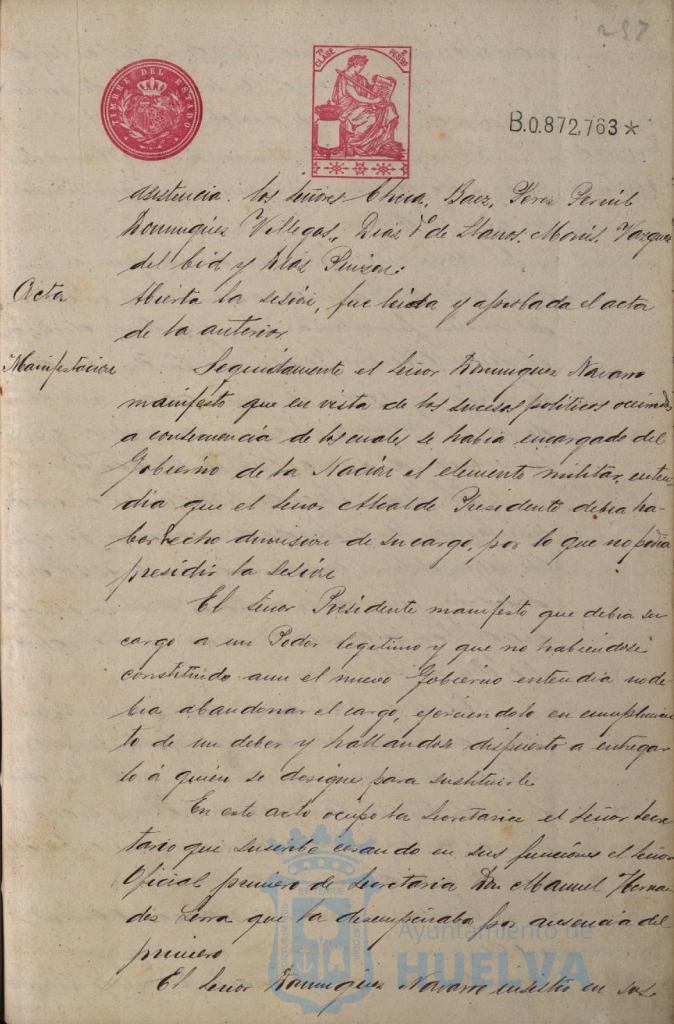 257
TIMBRE DEL ESTADO
7ª CLASE
2 PESETAS
B.0.872,763 *
asistencia. los señores Checa, Baez, Perez Gernil
Dominguez Villegas, Diaz de Llanos, Moril, Vazquez
del Cid y Diaz Quizon.
Acta
Abierta la sesión, fue leida y aprobada el acta
de la anterior
Manifestacion
Seguidamente el Señor Dominguez Navarro
manifestó que en vista de los sucesos políticos ocurridos
a consecuencia de los cuales se habia encargado del
Gobierno de la Nación el elemento militar, enten-
dia que el Señor Alcalde Presidente debia ha-
ber hecho dimision de su cargo, por lo que no podia
presidir la sesión
El Señor Presidente manifestó que debia su
cargo a un Poder legitimo y que no habiendose
constituido aun el nuevo Gobierno entendia no de-
bia abandonar el cargo, ejerciendolo en cumplimien-
to de un deber y hallandose dispuesto a entregar-
lo á quien se designe para sustituirle
En este acto ocupó la Secretaria el Señor Secre-
tario que suscribe cesando en sus funciones el Señor
Oficial primero de Secretaria Don Manuel Hernan-
dez que la desempeñaba por ausencia del
primero
El Señor Dominguez Navarro insistió en sus
Ayuntamiento de
HUELVA